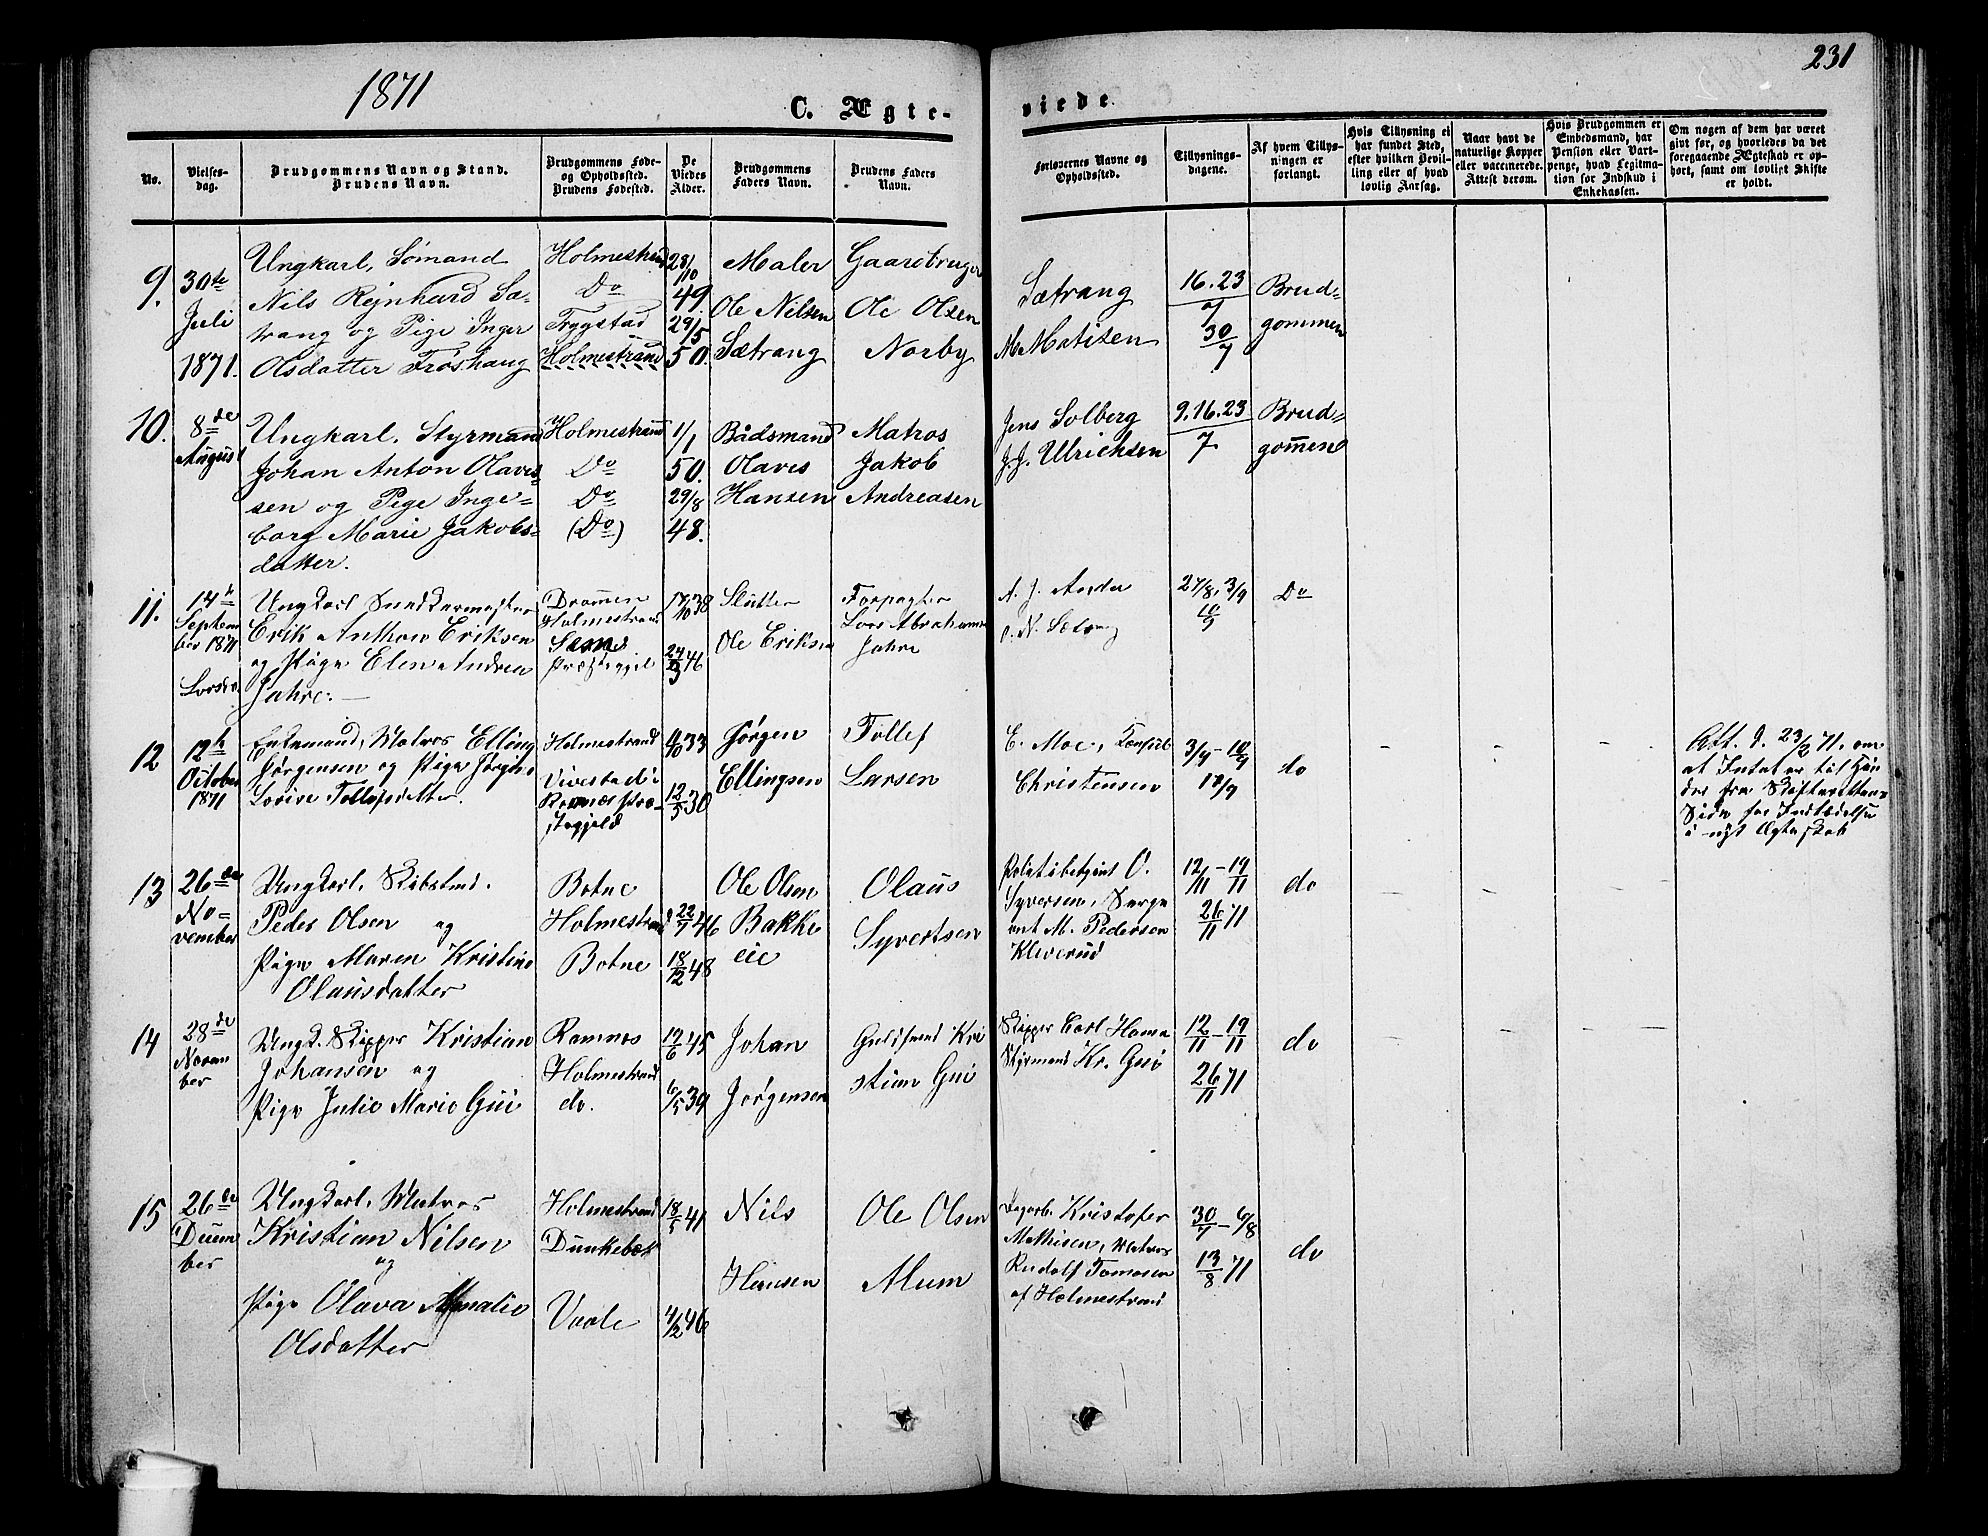 1871
231
C. Ægte-
viede
No.
Vielses-
dag.
Brudgommens Navn og Stand.
Brudens Navn.
Brudgommens Føde-
og Opholdssted.
Brudens Fødested.
De
Viedes
Alder.
Brudgommens
Faders Navn.
Brudens Faders
Navn.
Forlovernes Navne og
Opholdssted.
Tillysnings-
dagene.
Af hvem Tillys-
ningen er
forlangt.
Hvis Tillysning ei
har fundet Sted,
efter hvilken Bevil-
ling eller af hvad
lovlig Aarsag.
Naar havt de
naturlige Kopper
eller vaccinerede.
Attest derom.
Hvis Brudgommen er
Embedsmand, har
Pension eller Vart-
penge, hvad Legitima-
tion for Indskud i
Enkekassen.
Om nogen af dem har været
gift før, og hvorledes da det
foregaaende Ægteskab er op-
hørt, samt om lovligt Skifte
er holdt.
9.
30te
Juli
1871.
Ungkarl, Sømand
Nils Rejnhard Sæ-
trang og Pige Inger
Olsdatter Frøshaug
Holmestrand
Do
Trygstad
Holmestrand
28/10
49.
29/5
50.
Maler
Ole Nilsen
Sætrang
Gaardbruger
Ole Olsen
Norby
Sætrang
M. Matisen
16.23
7
30/7
Brud=
gommen
10.
8de
August
Ungkarl, Styrmand
Johan Anton Olavis-
sen og Pige Inge=
borg Marie Jakobs=
datter.
Holmestrand
Do
Do
(Do)
1/1
50.
29/8
48.
Bådsmand
Olaves
Hansen
Matros
Jakob
Andreasen
Jens Solberg
J. J. Ulrichsen
9.16.23
7
Brud=
gommen
11.
14de
Septem
ber 1871
Ungkarl Snedkermester
Erik Anthon Eriksen
og Pige Elen Andrea
Jahre.
Drammen
Holmestrand
Sems
Præstegjeld
17/10 38
24/3 46
Slutter
Ole Eriksen
Forpagter
Lars Abrahamsen
Jahre
27/8. 3/9
10/9
Do
12
12te
October
1871
Enkemand, Matros Elling
Jørgensen og Pige Jørgine
Lovise Tollefsdatter.
Holmestrand
Vivestad i
Ramnæs Præ-
stegjeld
4/10 33
12/5 30
Jørgen
Ellingsen
Tollef
Larsen
E. Moe, Konsul
Christensen
3/9 - 10/9
17/9
do
Att. d. 23/2 71. om
at Intet er til Hin
der fra Skifterettens
Side for Indtrædelse
i nyt Ægteskab
13
26de
No=
vember
Ungkarl, Skibstmd.
Peder Olsen og
Pige Maren Kristine
Olausdatter
Botne
Holmestrand
Botne
22/7 46
18/12 48
Ole Olsen
Bakke
eie
Olaus
Syvertsen
Politibetjent O.
Syversen, Serge
ant M. Pedersen
Kleverud
12/11 - 19/11
26/11 71
do
14
28de
Novem
ber
Ungk. Skipper Kristian
Johansen og
Pige Julie Marie Gui
Ramnes
Holmestrand
do.
17/6 45
6/5 39
Johan
Jørgensen
Guldsmed Kri
stian Gui
Skipper Carl Hama
Styrmand Kr. Gui
12/11 - 19/11
26/11 71
do
15
26de
Decem
ber
Ungkarl, Matros
Kristian Nilsen
og
Pige Olava Amalie
Olsdatter
Holmestrand
Dunkebæk
Vaale
18/5 41
4/12 46
Nils
Hansen
Ole Olsen
Mum
Dagarb. Kristofer
Mathisen, Matros
Rudolf Tomasen
af Holmestrand
30/7 - 6/8
13/8 71
do